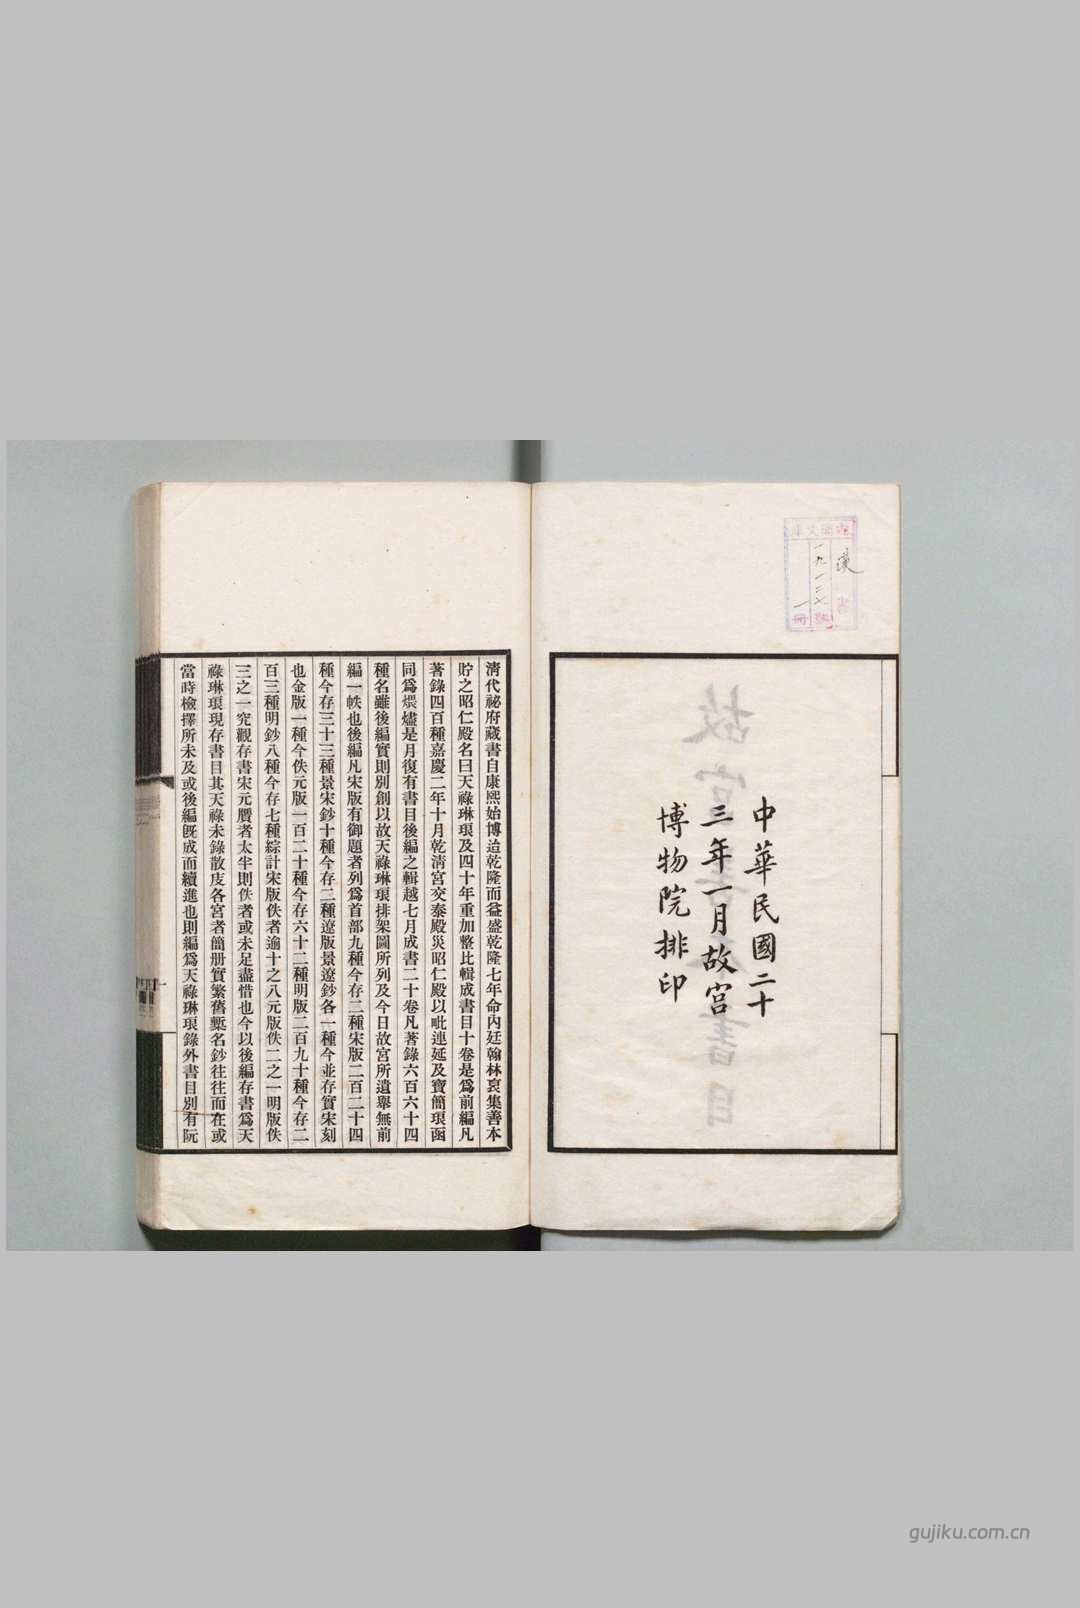 中華民國二十
三年一月故宮
博物院排印
漢
書
一九一三七
號
一
冊
清代祕府藏書自康熙始博迨乾隆而益盛乾隆七年命內廷翰林裒集善本
貯之昭仁殿名曰天祿琳琅及四十年重加整比輯成書目十卷是爲前編凡
著錄四百種嘉慶二年十月乾清宮交泰殿災昭仁殿以毗連延及寶簡琅函
同爲煨燼是月復有書目後編之輯越七月成書二十卷凡著錄六百六十四
種名雖後編實則別創以故天祿琳琅排架圖所列及今日故宮所遺舉無前
編一帙也後編凡宋版有御題者列爲首部九種今存二種宋版二百二十四
種今存三十三種景宋鈔十種今存二種遼版景遼鈔各一種今並存實宋刻
也金版一種今佚元版一百二十種今存六十二種明版二百九十種今存二
百三種明鈔八種今存七種綜計宋版佚者逾十之八元版佚二之一明版佚
三之一究觀存書宋元贋者太半則佚者或未足盡惜也今以後編存書爲天
祿琳琅現存書目其天祿未錄散庋各宮者簡册實繁舊槧名鈔往往而在或
當時檢擇所未及或後編旣成而續進也則編爲天祿琳琅錄外書目別有阮
gujiku.com.cn